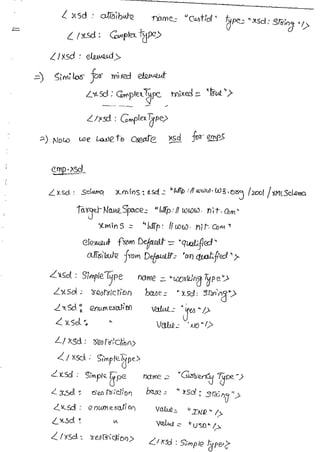 <xsd : attribute name= "CustId" type= "xsd: String"/>
</xsd : Complex Type>
</xsd : element>
=> Similar for mixed element
<xsd : ComplexType mixed = "true">
</xsd : Complex Type>
=> Now we have to create xsd for emps
emp.xsd
<xsd : Schema xmlns : xsd = "http://www.w3.org/2001/XMLSchema
target Name Space = "http://www.nit.com"
xmlns = "http://www.nit.com"
element Form Default = "qualified"
attribute form Default = "un qualified">
<xsd : Simple Type name = "working Type">
<xsd : restriction base = "xsd: String">
<xsd : enumeration value = "yes"/>
<xsd : " Value = "no"/>
</xsd : restriction>
</xsd : SimpleType>
<xsd : Simple Type name = "Currency Type">
<xsd : restriction base = "xsd : String">
<xsd : enumeration value = "INR"/>
<xsd : " value = "USD"/>
</xsd : restriction> </xsd : Simple Type>